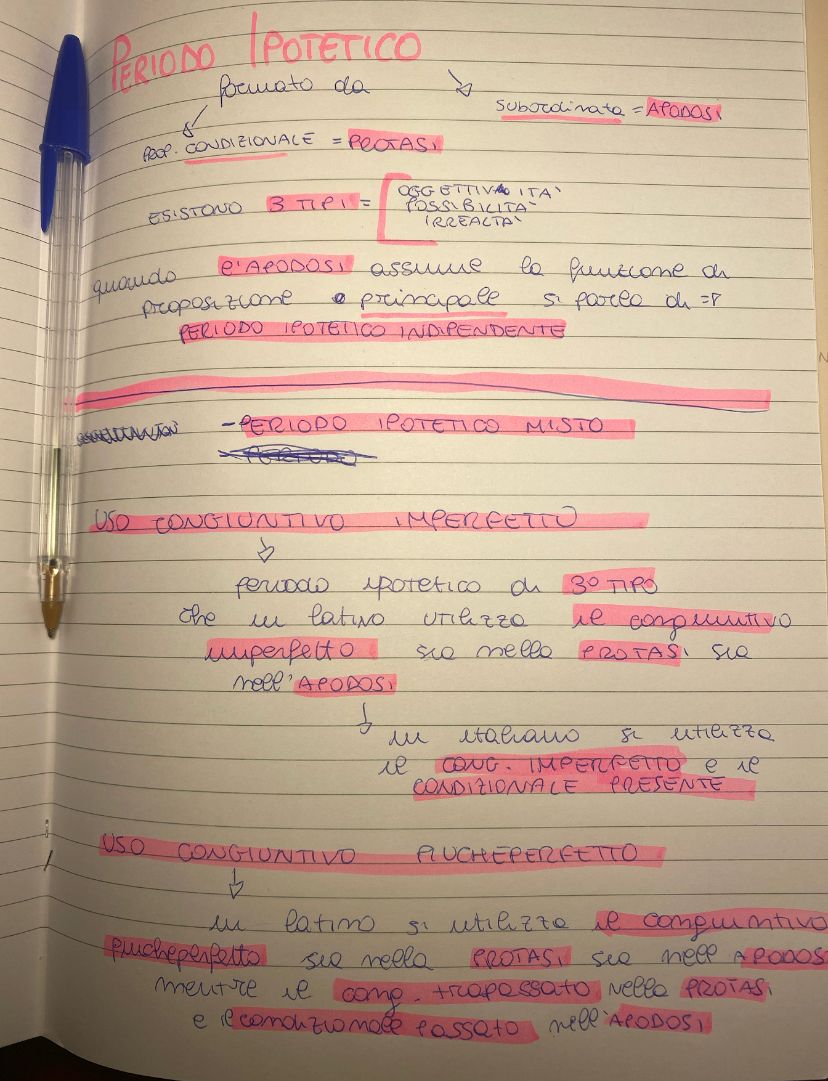 PERIODO IPOTETICO
formato da
subordinata = APODOSI
PROP. CONDIZIONALE = PROTASI
OGGETTIVITA'
ESISTONO 3 TIPI = POSSIBILITA'
IRREALTA'
quando l'APODOSI assume la funzione di
proposizione principale si parla di =>
PERIODO IPOTETICO INDIPENDENTE
- PERIODO IPOTETICO MISTO
USO CONGIUNTIVO IMPERFETTO
periodo ipotetico di 3° TIPO
che in latino utilizza il congiuntivo
imperfetto sia nella PROTASI sia
nell'APODOSI
in italiano si utilizza
il CONG. IMPERFETTO e il
CONDIZIONALE PRESENTE
USO CONGIUNTIVO PIUCHEPERFETTO
in latino si utilizza il congiuntivo
piucheperfetto sia nella PROTASI sia nell APODOSI
mentre il cong. trapassato nella PROTASI
e il condizionale passato nell'APODOSI